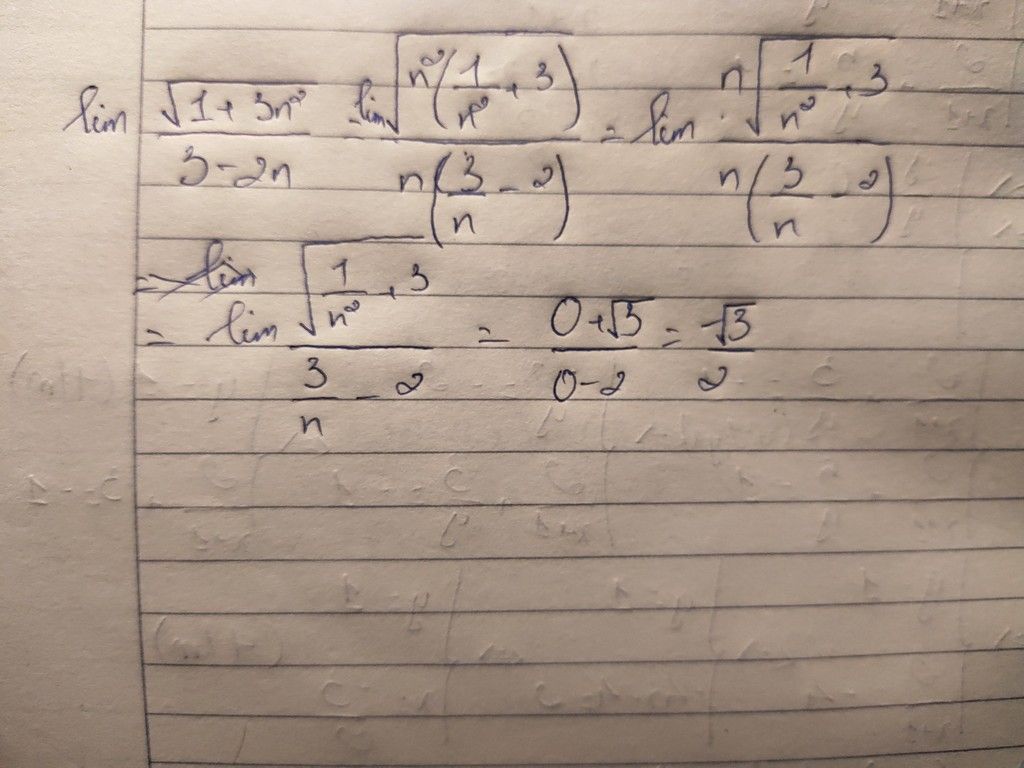 lim √(1 + 3n²) / (3 - 2n) = lim √(n²(1/n² + 3)) / n(3/n - 2) = lim n√(1/n² + 3) / n(3/n - 2)
= lim √(1/n² + 3) / (3/n - 2) = (0 + √3) / (0 - 2) = -√3 / 2